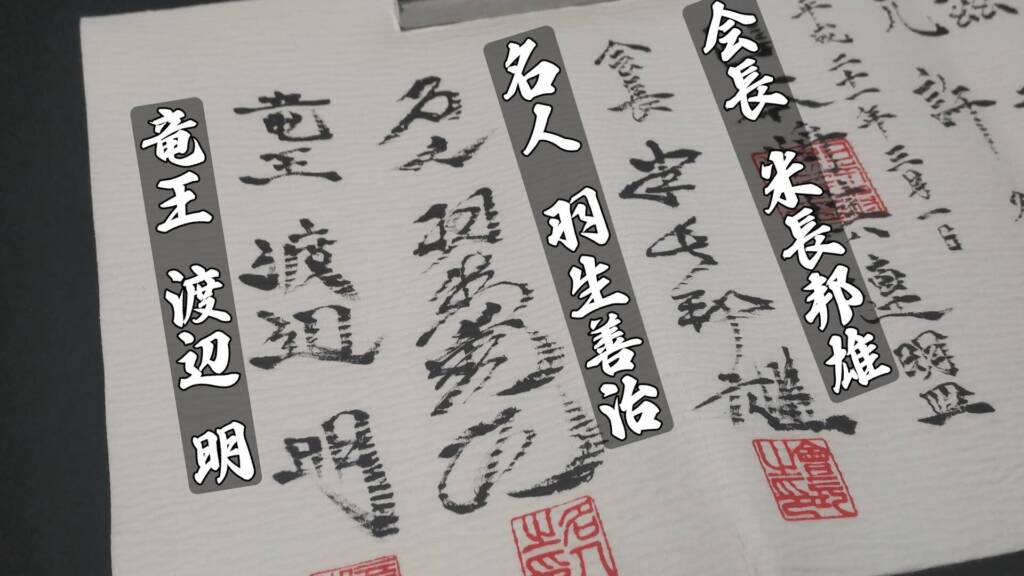 許
平成二十一年三月一日
会長 米長邦雄
会長
米長邦雄
名人 羽生善治
名人
羽生善治
竜王
渡辺
明
竜王 渡辺 明